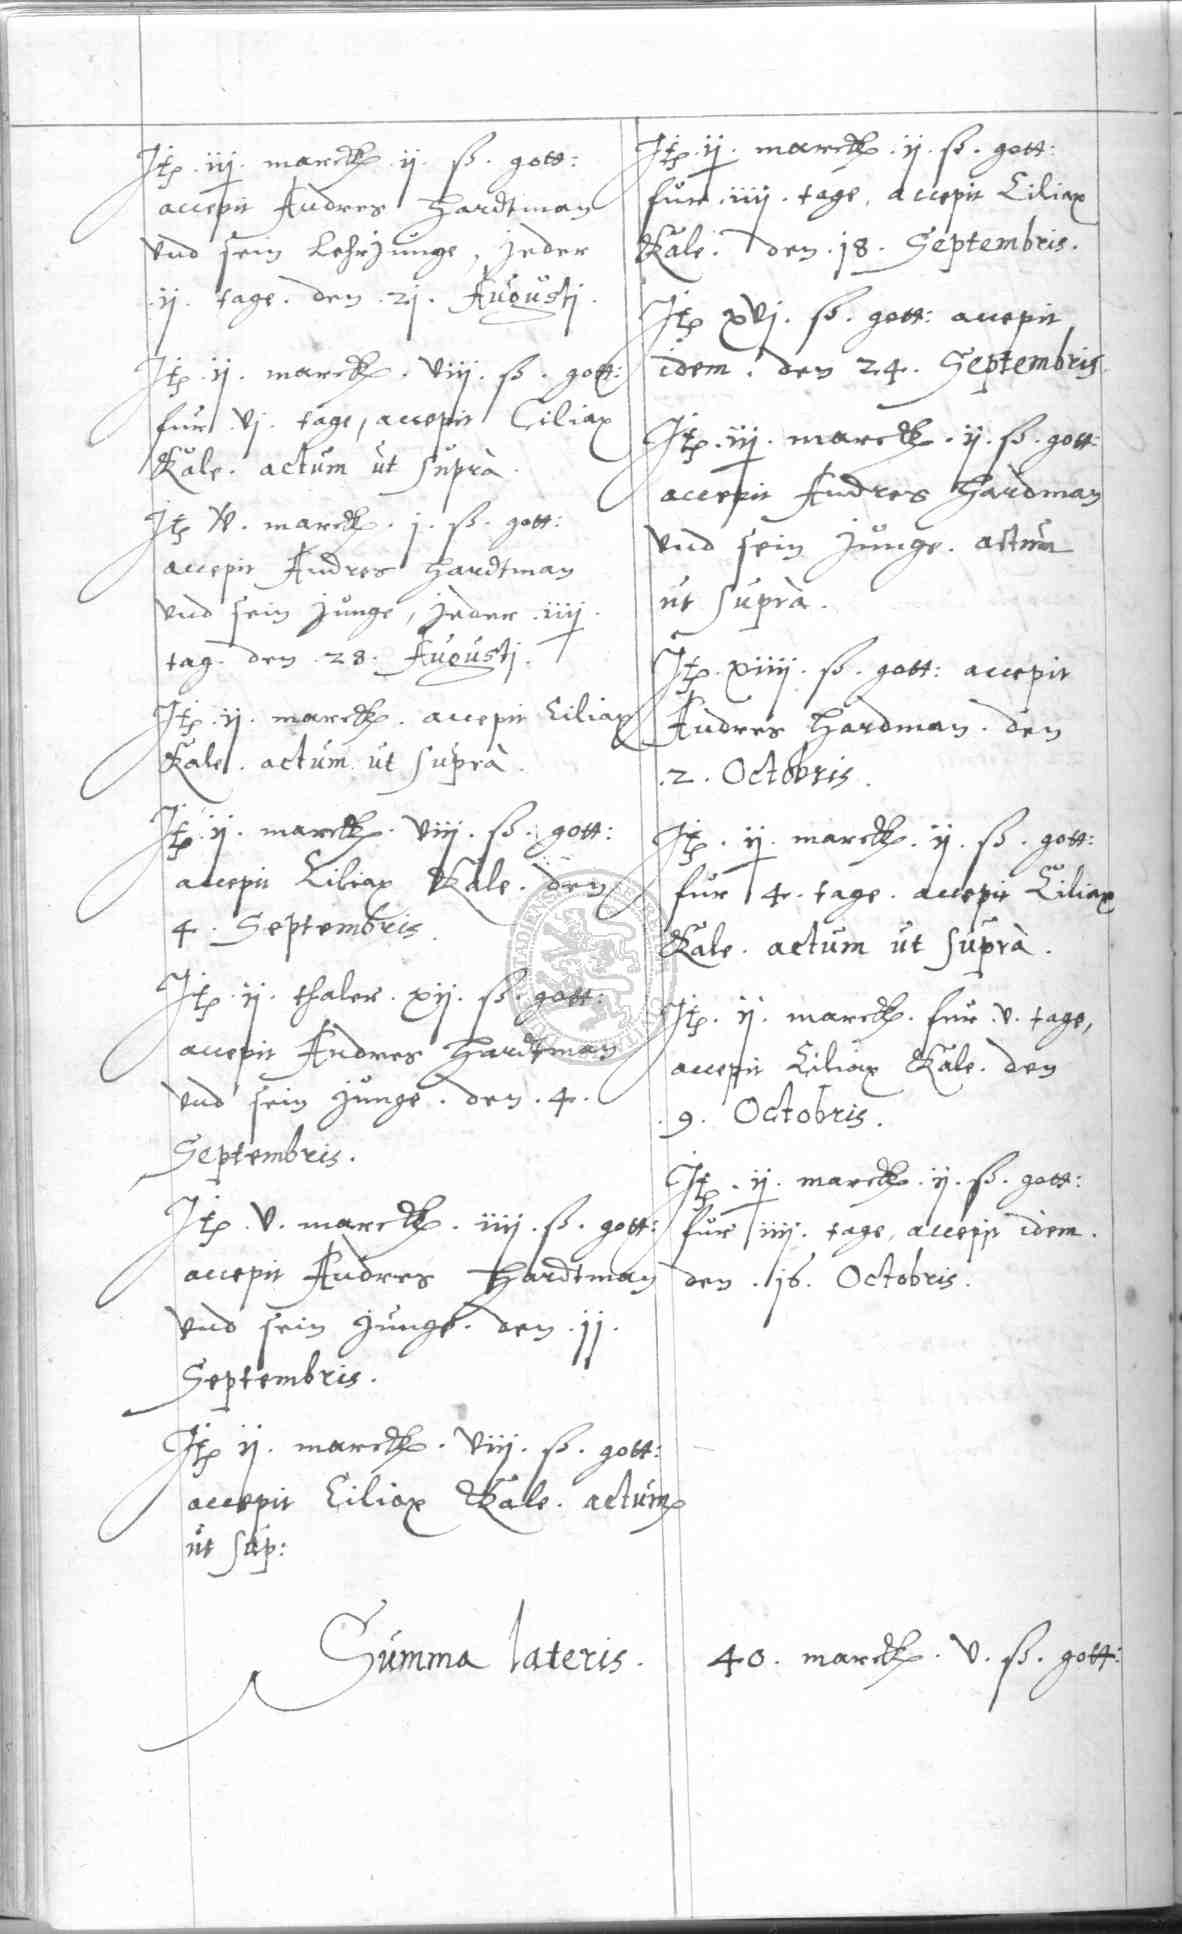 Itp. iij. marck. ij. ß. gott:
accepit Andres Hardtman
vnd sein Lehrjunge, jeder
.ij. tage. den .21. Augusti.
Itp. ij. marck. viij. ß. gott:
fur .vj. tage, accepit Ciliax
Kale. actum ut suprà.
Itp. v. marck. j. ß. gott:
accepit Andres Hardtman
vnd sein Junge, jeder .iiij.
tag. den .28. Augusti.
Itp. ij. marck. accepit Ciliax
Kale. actum ut suprà.
Itp. ij. marck. viij. ß. gott:
accepit Ciliax Kale. den
4. Septembris.
Itp. ij. thaler. xij. ß. gott:
accepit Andres Hardtman
vnd sein Junge. den .4.
Septembris.
Itp. v. marck. iiij. ß. gott:
accepit Andres Hardtman
vnd sein Junge. den .11.
Septembris.
Itp. ij. marck. viij. ß. gott:
accepit Ciliax Kale. actum
ut sup:
Itp. ij. marck. ij. ß. gott:
fur .iiij. tage, accepit Ciliax
Kale. den .18. Septembris.
Itp. xvj. ß. gott: accepit
idem. den 24. Septembris.
Itp. iij. marck. ij. ß. gott:
accepit Andres Hardman
vnd sein Junge. actum
ut suprà.
Itp. xiiij. ß. gott: accepit
Andres Hardman. den
.2. Octobris.
Itp. ij. marck. ij. ß. gott:
fur 4. tage. accepit Ciliax
Kale. actum ut suprà.
Itp. ij. marck. fur .v. tage,
accepit Ciliax Kale. den
.9. Octobris.
Itp. ij. marck. ij. ß. gott:
fur iiij. tage, accepit idem.
den .16. Octobris.
Summa lateris. 40. marck. v. ß. gott: